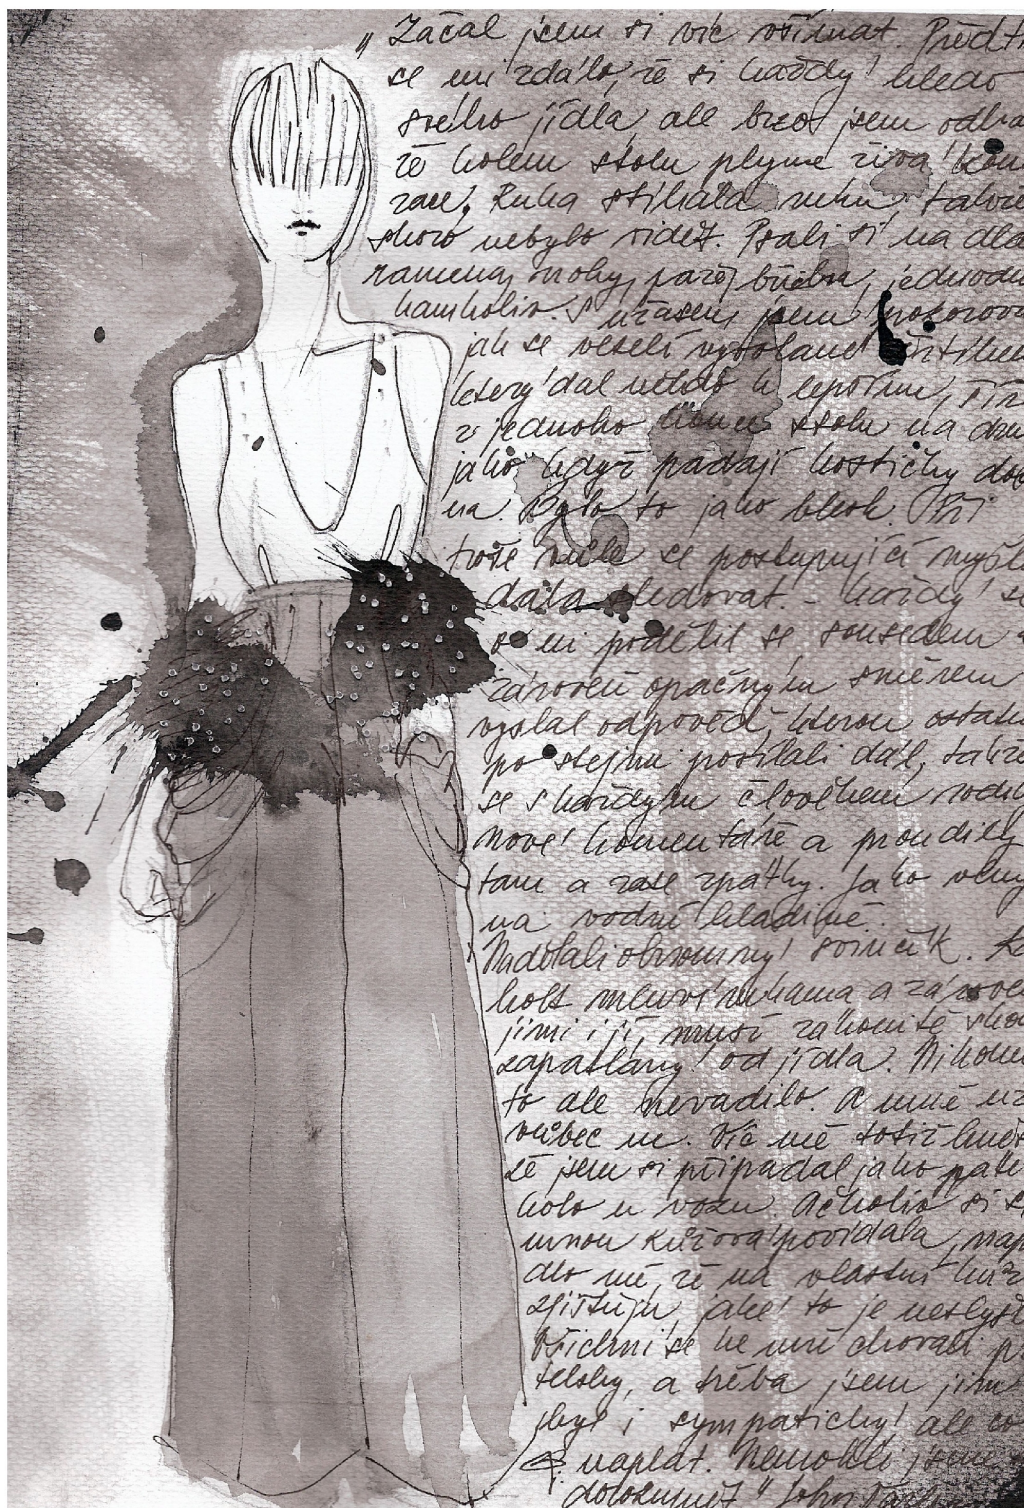 „Začal jsem si víc všímat. Předt
se mi zdálo, že si každý hledo
svého jídla, ale brzo jsem odha
že kolem stolu plyne živá kon
zace. Ruka stíhala ruku, takže
skoro nebylo vidět. Psali si na dla
ramena, nohy, paže, břicho, jednodu
kamkoliv. S úžasem jsem pozorova
jak se veselí vyvolané
který dal někdo k lepšímu, šíř
z jednoho konce stolu na dru
jako když padají kostičky do
na. Bylo to jako blesk. Při
troše vůle se postupující myšle
dala sledovat. – Každý se
o ni podělil se sousedem a
zároveň opačným směrem
vyslal odpověď, kterou ostatn
po stejnu posílali dál, takže
se s každým člověkem rodil
nové komentáře a proudily
tam a zase zpátky. Jako vlny
na vodní hladině.
Nadělali ohromný svinčík. Kd
holt mluví rukama a zárove
jimi i jí, musí zákonitě sko
zapatlaný od jídla. Nikomu
to ale nevadilo. A mně už
vůbec ne. Víc mě totiž hnět
že jsem si připadal jako páté
kolo u vozu. Ačkoliv si se
mnou povídala, nap
dlo mě, že na vlastní kůž
zjišťuju jaké to je neslyše
Všichni se ke mně chovali p
těloby, a třeba jsem jim
byl i sympatický ale co
naplat. Nemohli jsme s
dorozumět“ John